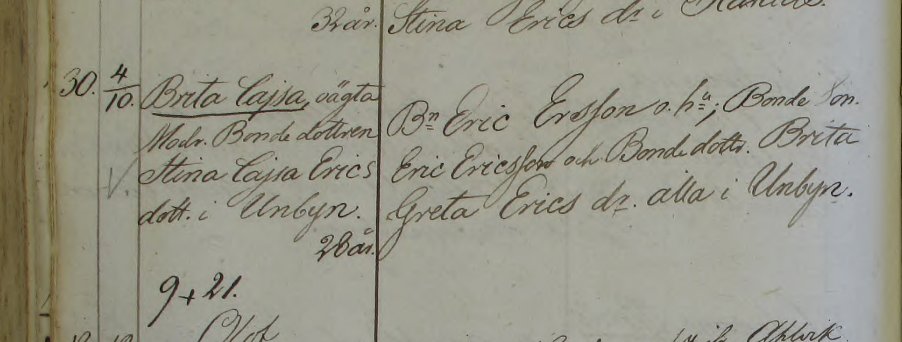 32 år. Stina Erics dr i
30. 4/10. Brita Cajsa, oägta
Modr. Bonde dottren
Stina Cajsa Erics
dott. i Unbyn.
28 år.
9+21.
Bn Eric Ersson o. hu; Bonde Son.
Eric Ericsson och Bonde dottr. Brita
Greta Erics dr. alla i Unbyn.
Olof